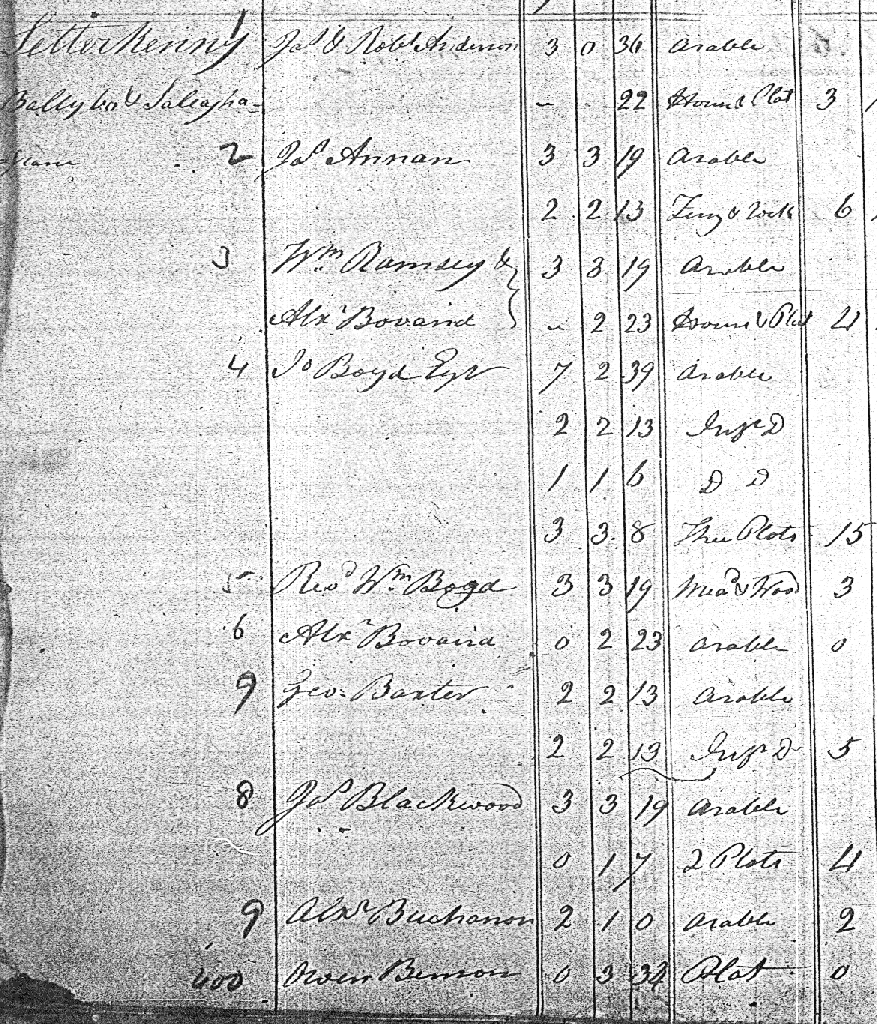 Letterkenny 1 Jas & Robt Anderson 3 0 36 Arable
Ballybo & Sallagha- - . 22 House & Plot 3
grane 2 Jas Annan 3 3 19 Arable
2 2 13 6
3 Wm Ramsey & 3 3 19 Arable
Alxr Bovaird - 2 23 House & Plot 4
4 Jo Boyd Eqr 7 2 39 Arable
2 2 13 Infr D
1 1 6 D D
3 3 8 Three Plots 15
5 Revd Wm Boyd 3 3 19 Mead & Wood 3
6 Alxr Bovaird 0 2 23 Arable 0
7 Geo: Baxter 2 2 13 Arable
2 2 13 Infr D 5
8 Jas Blackwood 3 3 19 Arable
0 1 7 2 Plots 4
9 Alxr Buchanon 2 1 0 Arable 2
Owen Benson 0 3 34 Plot 0